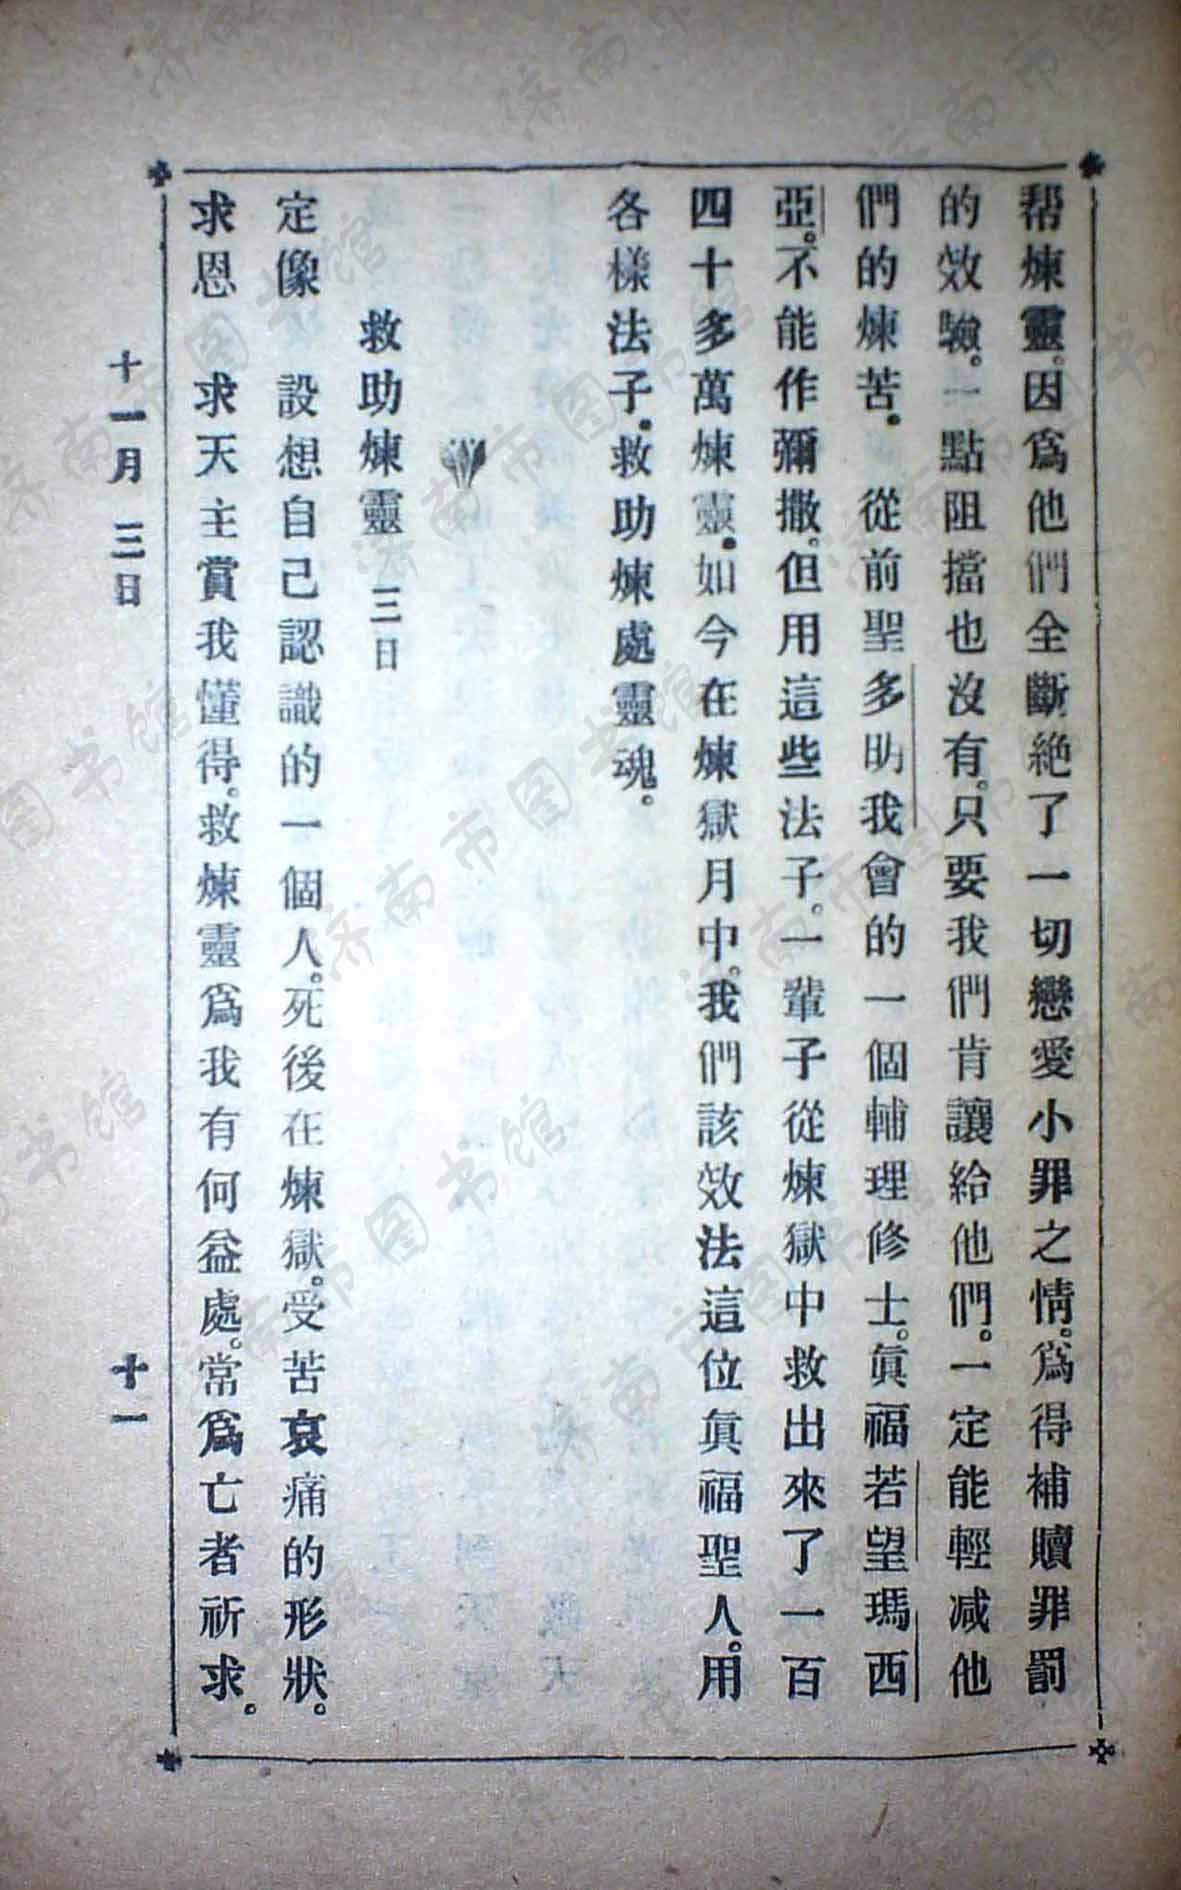 帮煉靈。因爲他們全斷絶了一切戀愛小罪之情。爲得補贖罪罰
的效驗。一點阻擋也沒有。只要我們肯讓給他們。一定能輕減他
們的煉苦。 從前聖多明我會的一個輔理修士。眞福若望瑪西
亞。不能作彌撒。但用這些法子。一輩子從煉獄中救出來了一百
四十多萬煉靈。如今在煉獄月中。我們該效法這位眞福聖人。用
各樣法子。救助煉處靈魂。
救助煉靈 三日
定像 設想自己認識的一個人。死後在煉獄。受苦哀痛的形狀。
求恩 求天主賞我懂得。救煉靈爲我有何益處。常爲亡者祈求。
十一月 三日 十一
济南市图书馆